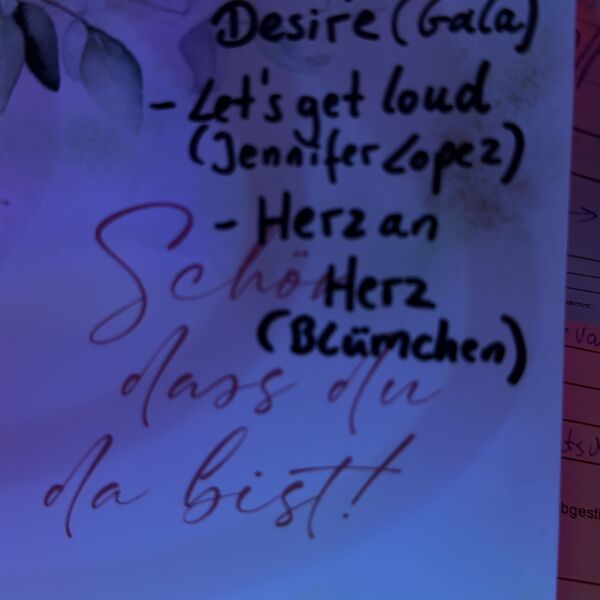 Desire (Gala)
- Let's get loud
(Jennifer Lopez)
- Herz an
Herz
(Blümchen)
Schön
dass du
da bist!